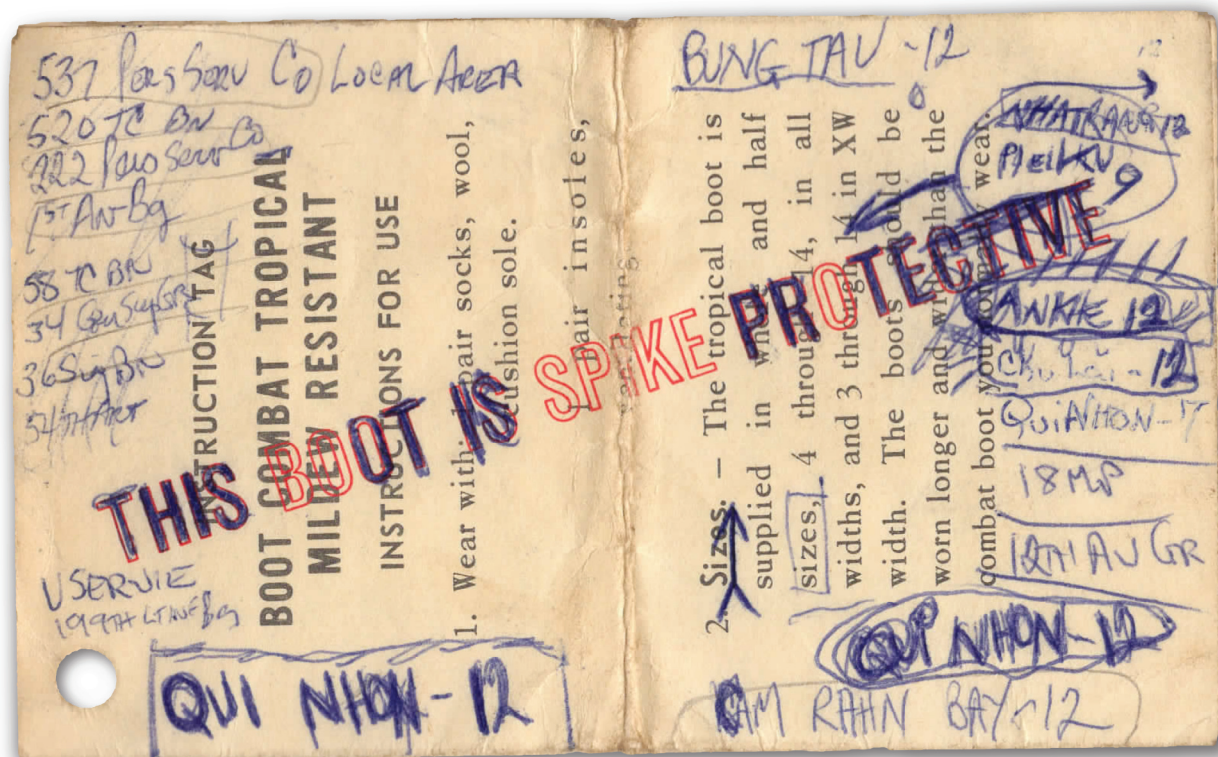 537 Pers Serv Co Local Area
520 TC BN
222 Pers Serv Co
1ST AV Bg
58 TC BN
34 Gen Sup Gr
36 Sig BN
USERVIE
199TH LT INF Bg
QUI NHON - 12
INSTRUCTION TAG
BOOT COMBAT TROPICAL
MILDEW RESISTANT
INSTRUCTIONS FOR USE
1. Wear with pair socks, wool,
cushion sole.
1 pair insoles,
ventilating
THIS BOOT IS SPIKE PROTECTIVE
BUNG TAU - 12
2. Sizes. — The tropical boot is
supplied in whole and half
sizes, 4 through 14, in all
widths, and 3 through 14 in XW
width. The boots should be
worn longer and wider than the
combat boot you wear.
12
NHATRANG 12
PLEIKU 9
ANKHE 12
Chu Lai - 12
QUINHON - 7
18 MP
12TH AV GR
QUI NHON - 12
CAM RAHN BAY - 12